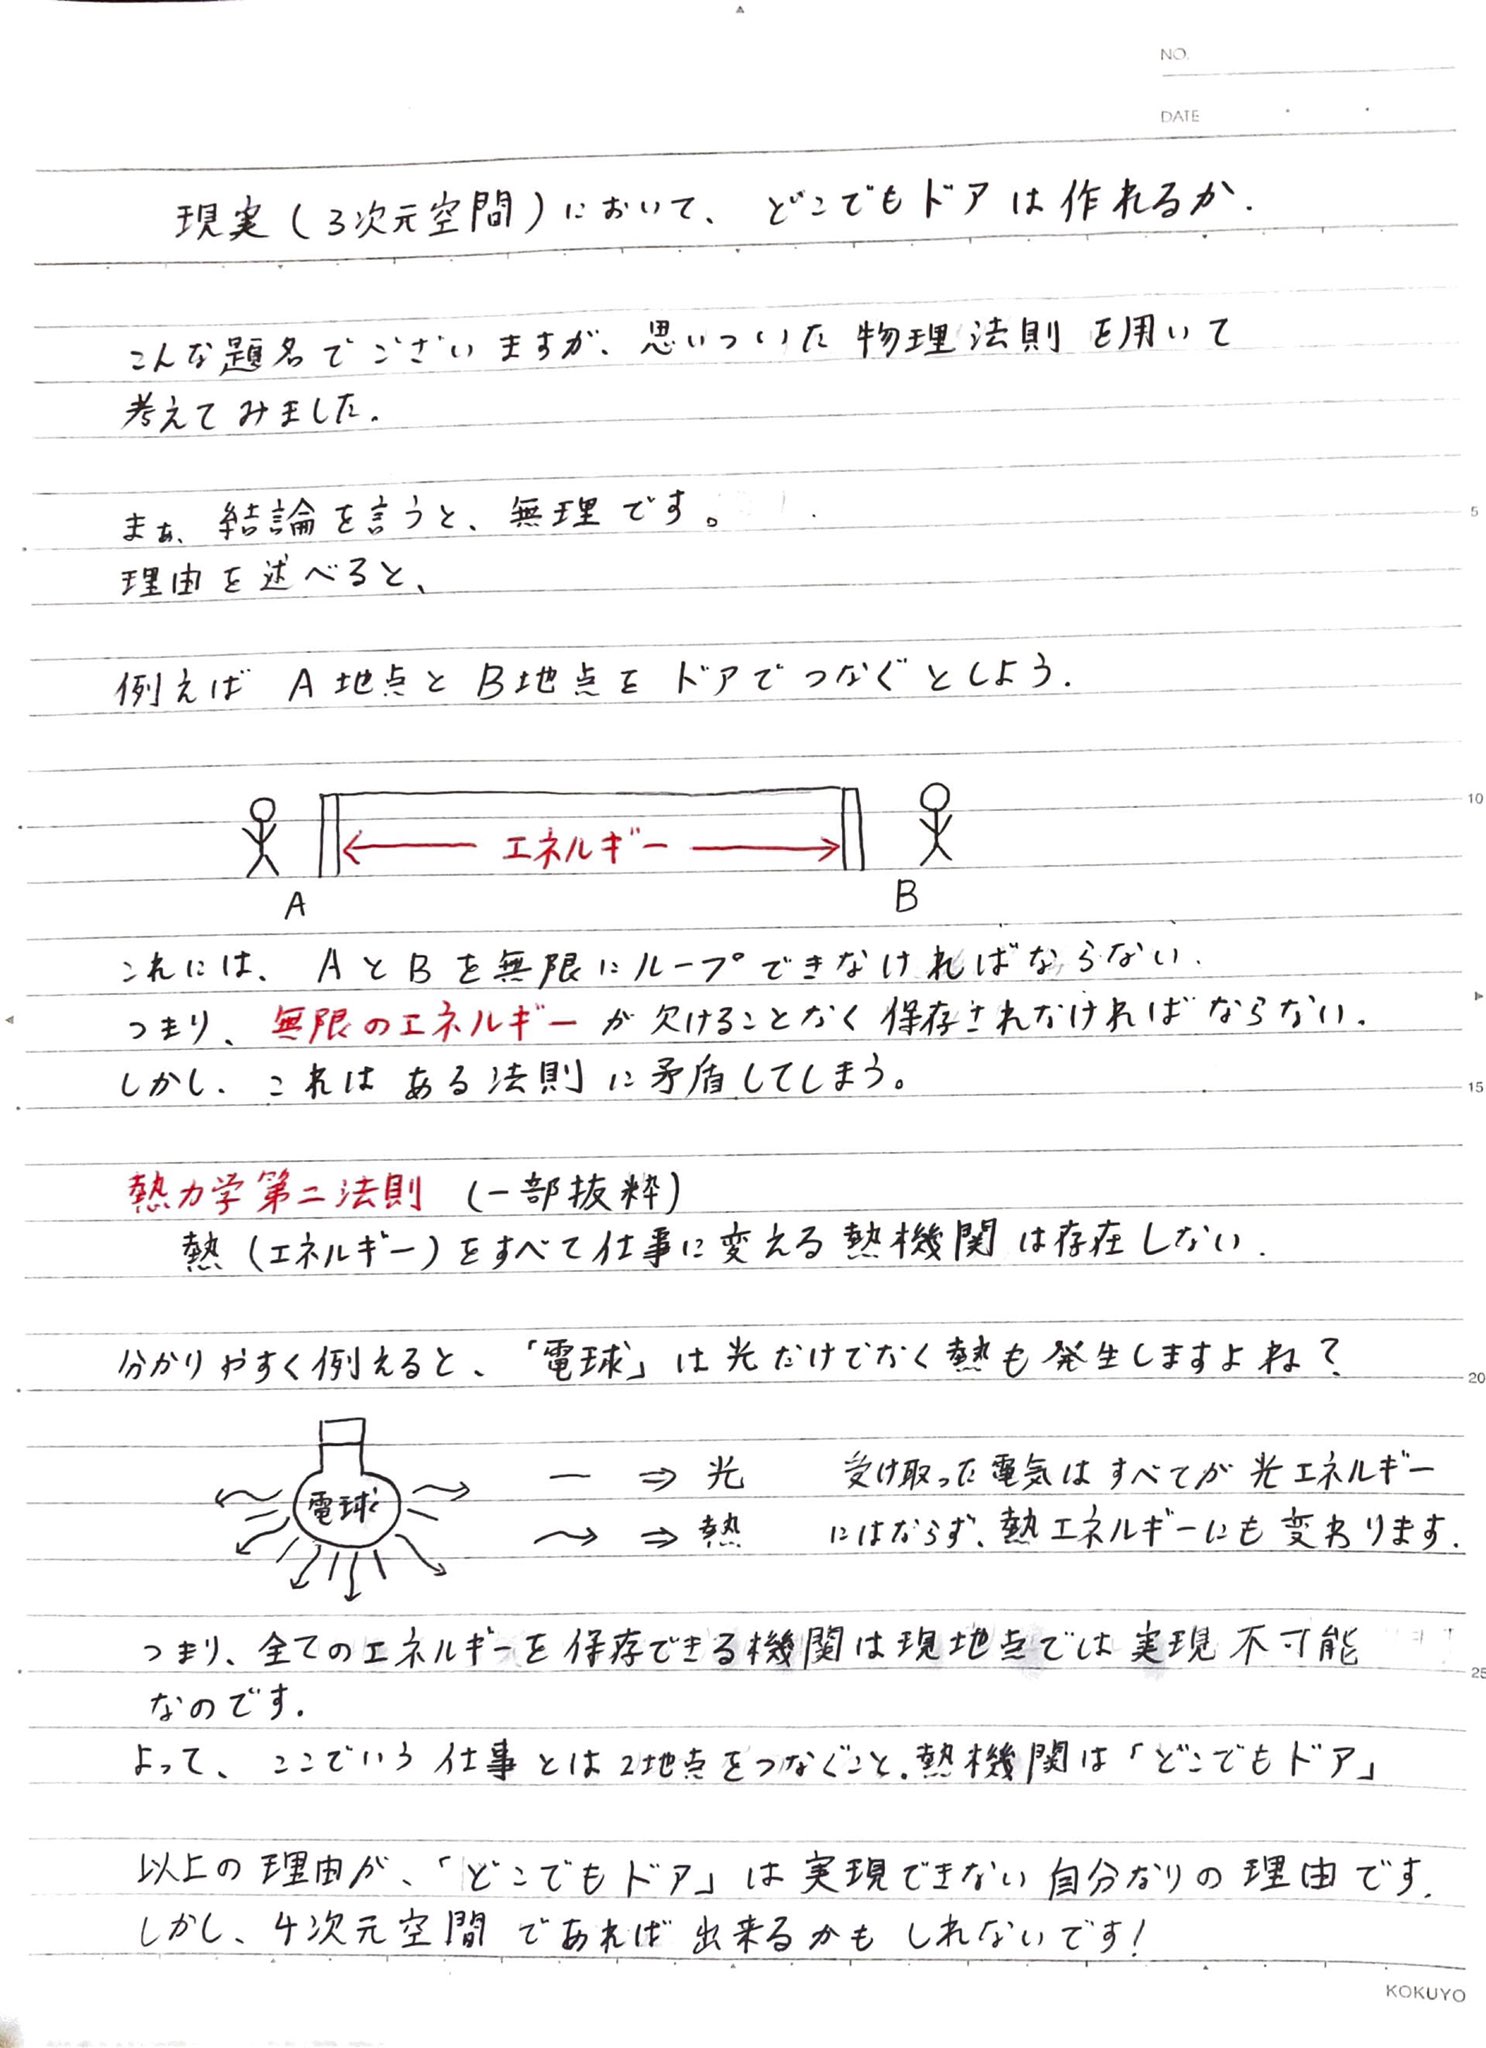 NO.
DATE
現実(3次元空間)において、どこでもドアは作れるか.
こんな題名でございますが、思いついた物理法則を用いて
考えてみました.
まぁ、結論を言うと、無理です。
5
理由を述べると、
例えばA地点とB地点をドアでつなぐとしよう.
10
エネルギー
A
B
これには、AとBを無限にループできなければならない.
つまり、無限のエネルギーが欠けることなく保存されなければならない.
しかし、これはある法則に矛盾してしまう。
15
熱力学第二法則(一部抜粋)
熱(エネルギー)をすべて仕事に変える熱機関は存在しない.
分かりやすく例えると、「電球」は光だけでなく熱も発生しますよね?
20
電球
ー ⇒ 光
受け取った電気はすべてが光エネルギー
〜→ ⇒ 熱
にはならず、熱エネルギーにも変わります.
つまり、全てのエネルギーを保存できる機関は現地点では実現不可能
25
なのです.
よって、ここでいう仕事とは2地点をつなぐこと.熱機関は「どこでもドア」
以上の理由が、「どこでもドア」は実現できない自分なりの理由です.
しかし、4次元空間であれば出来るかもしれないです!
KOKUYO